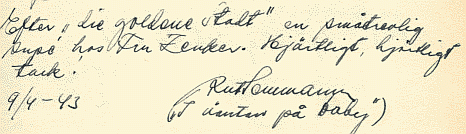 Efter „die goldene Stadt" en småtrevlig
supé hos Fru Zenker. Hjärtligt, hjärtligt
tack!
9/4-43
("I väntan på baby")